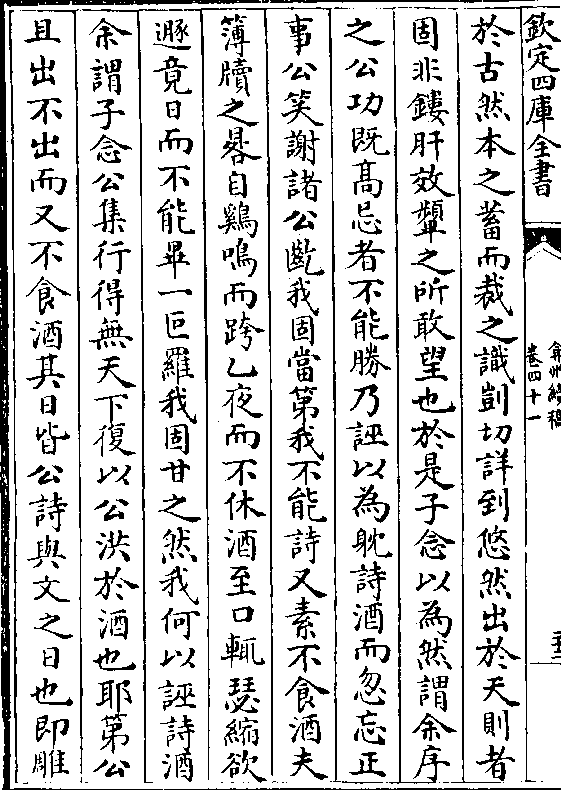 欽定四庫全書
弇州續稿
卷四十一
於古然本之蓄而裁之識剴切詳到悠然出於天則者
固非鏤肝效顰之所敢望也於是子念以為然謂余序
之公功既髙忌者不能勝乃誣以為躭詩酒而忽忘正
事公笑謝諸公齕我固當第我不能詩又素不食酒夫
簿牘之晷自鷄鳴而跨乙夜而不休酒至口輒瑟縮欲
遯竟日而不能畢一叵羅我固甘之然我何以誣詩酒
余謂子念公集行得無天下復以公洪於酒也耶第公
且出不出而又不食酒其日皆公詩與文之日也即雕